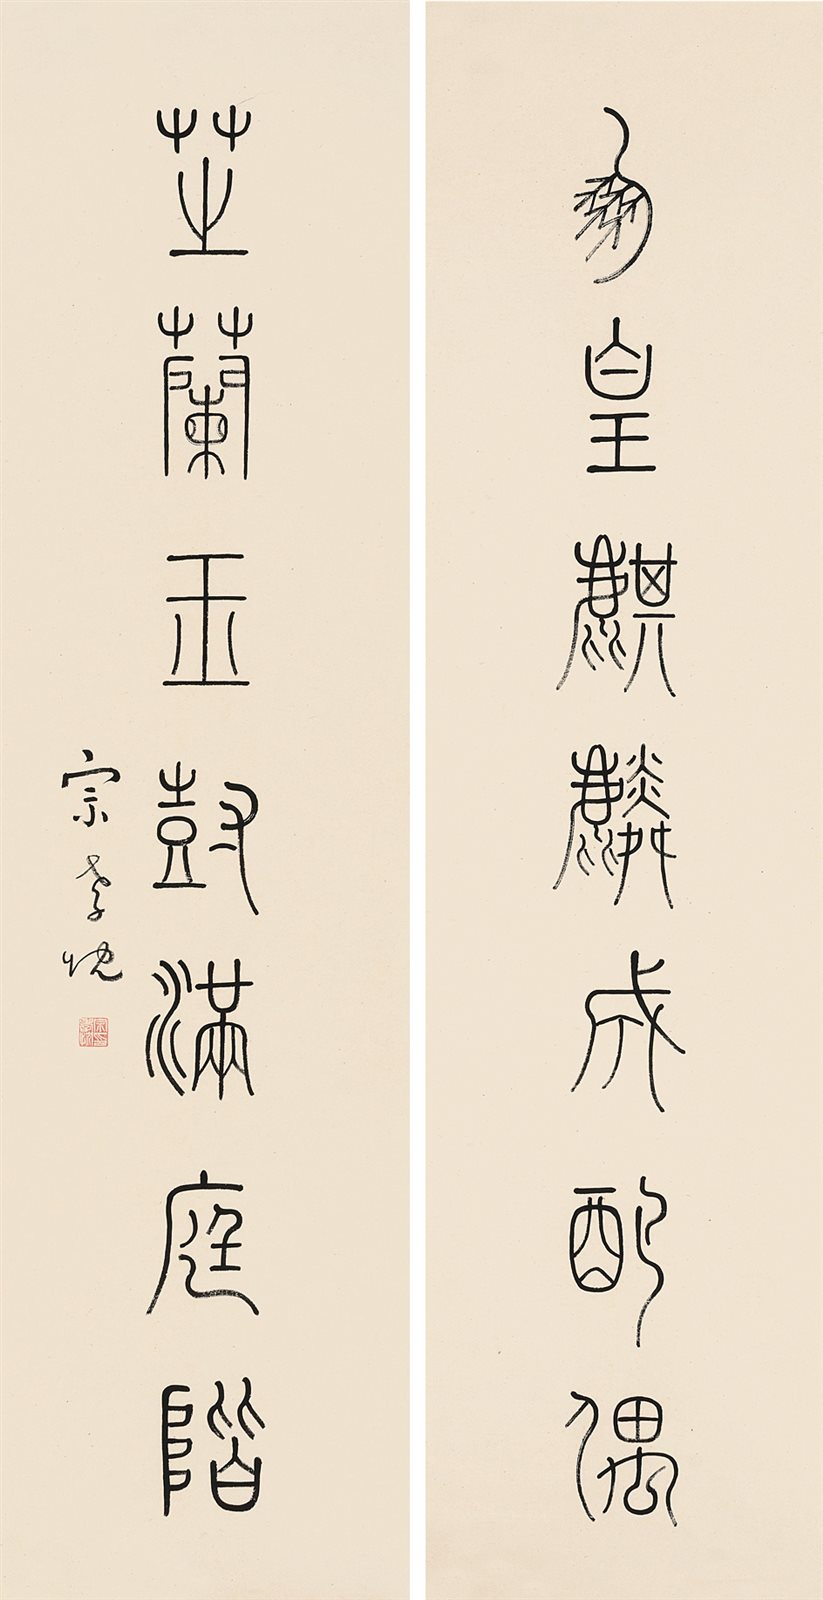 鳳皇麒麟成配偶
芝蘭玉尌滿庭階
宗孝忱